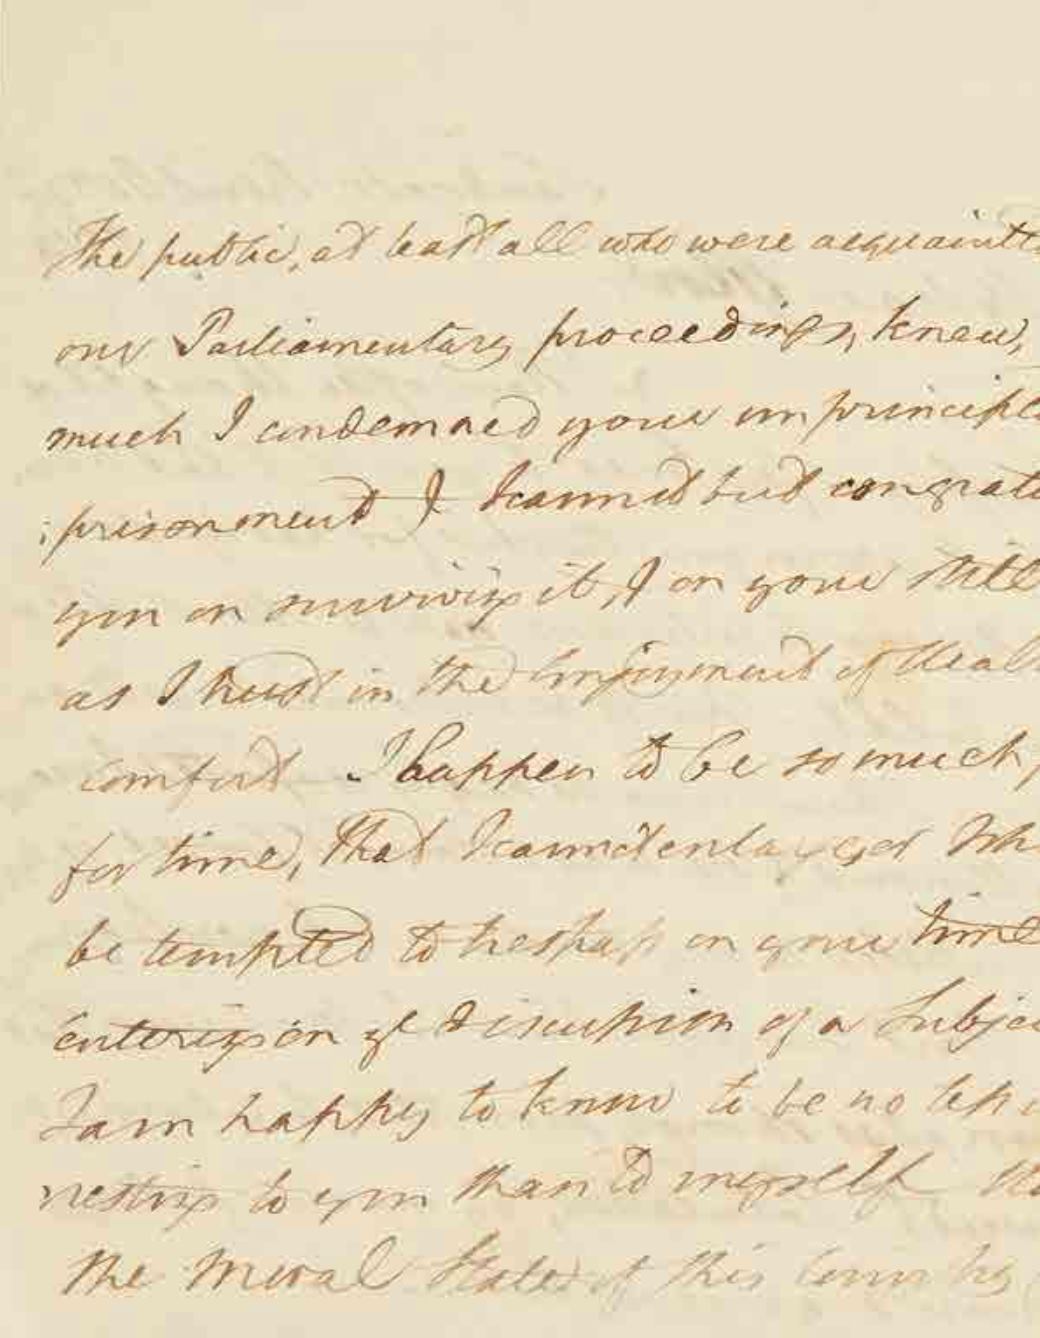 The public, at least all who were acquainte
our Parliamentary proceedings, knew,
much I condemned your unprinciple
prisonment & I cannot but congrat
you on surviving it, & on your still
as I trust in the Enjoyment of Heal
comfort I happen to be so much
for time, that I cannot enlarge or
be tempted to trespass on your time
entering on ye discussion of a Subje
I am happy to know to be no less
resting to you than to myself
the Moral State of this Country